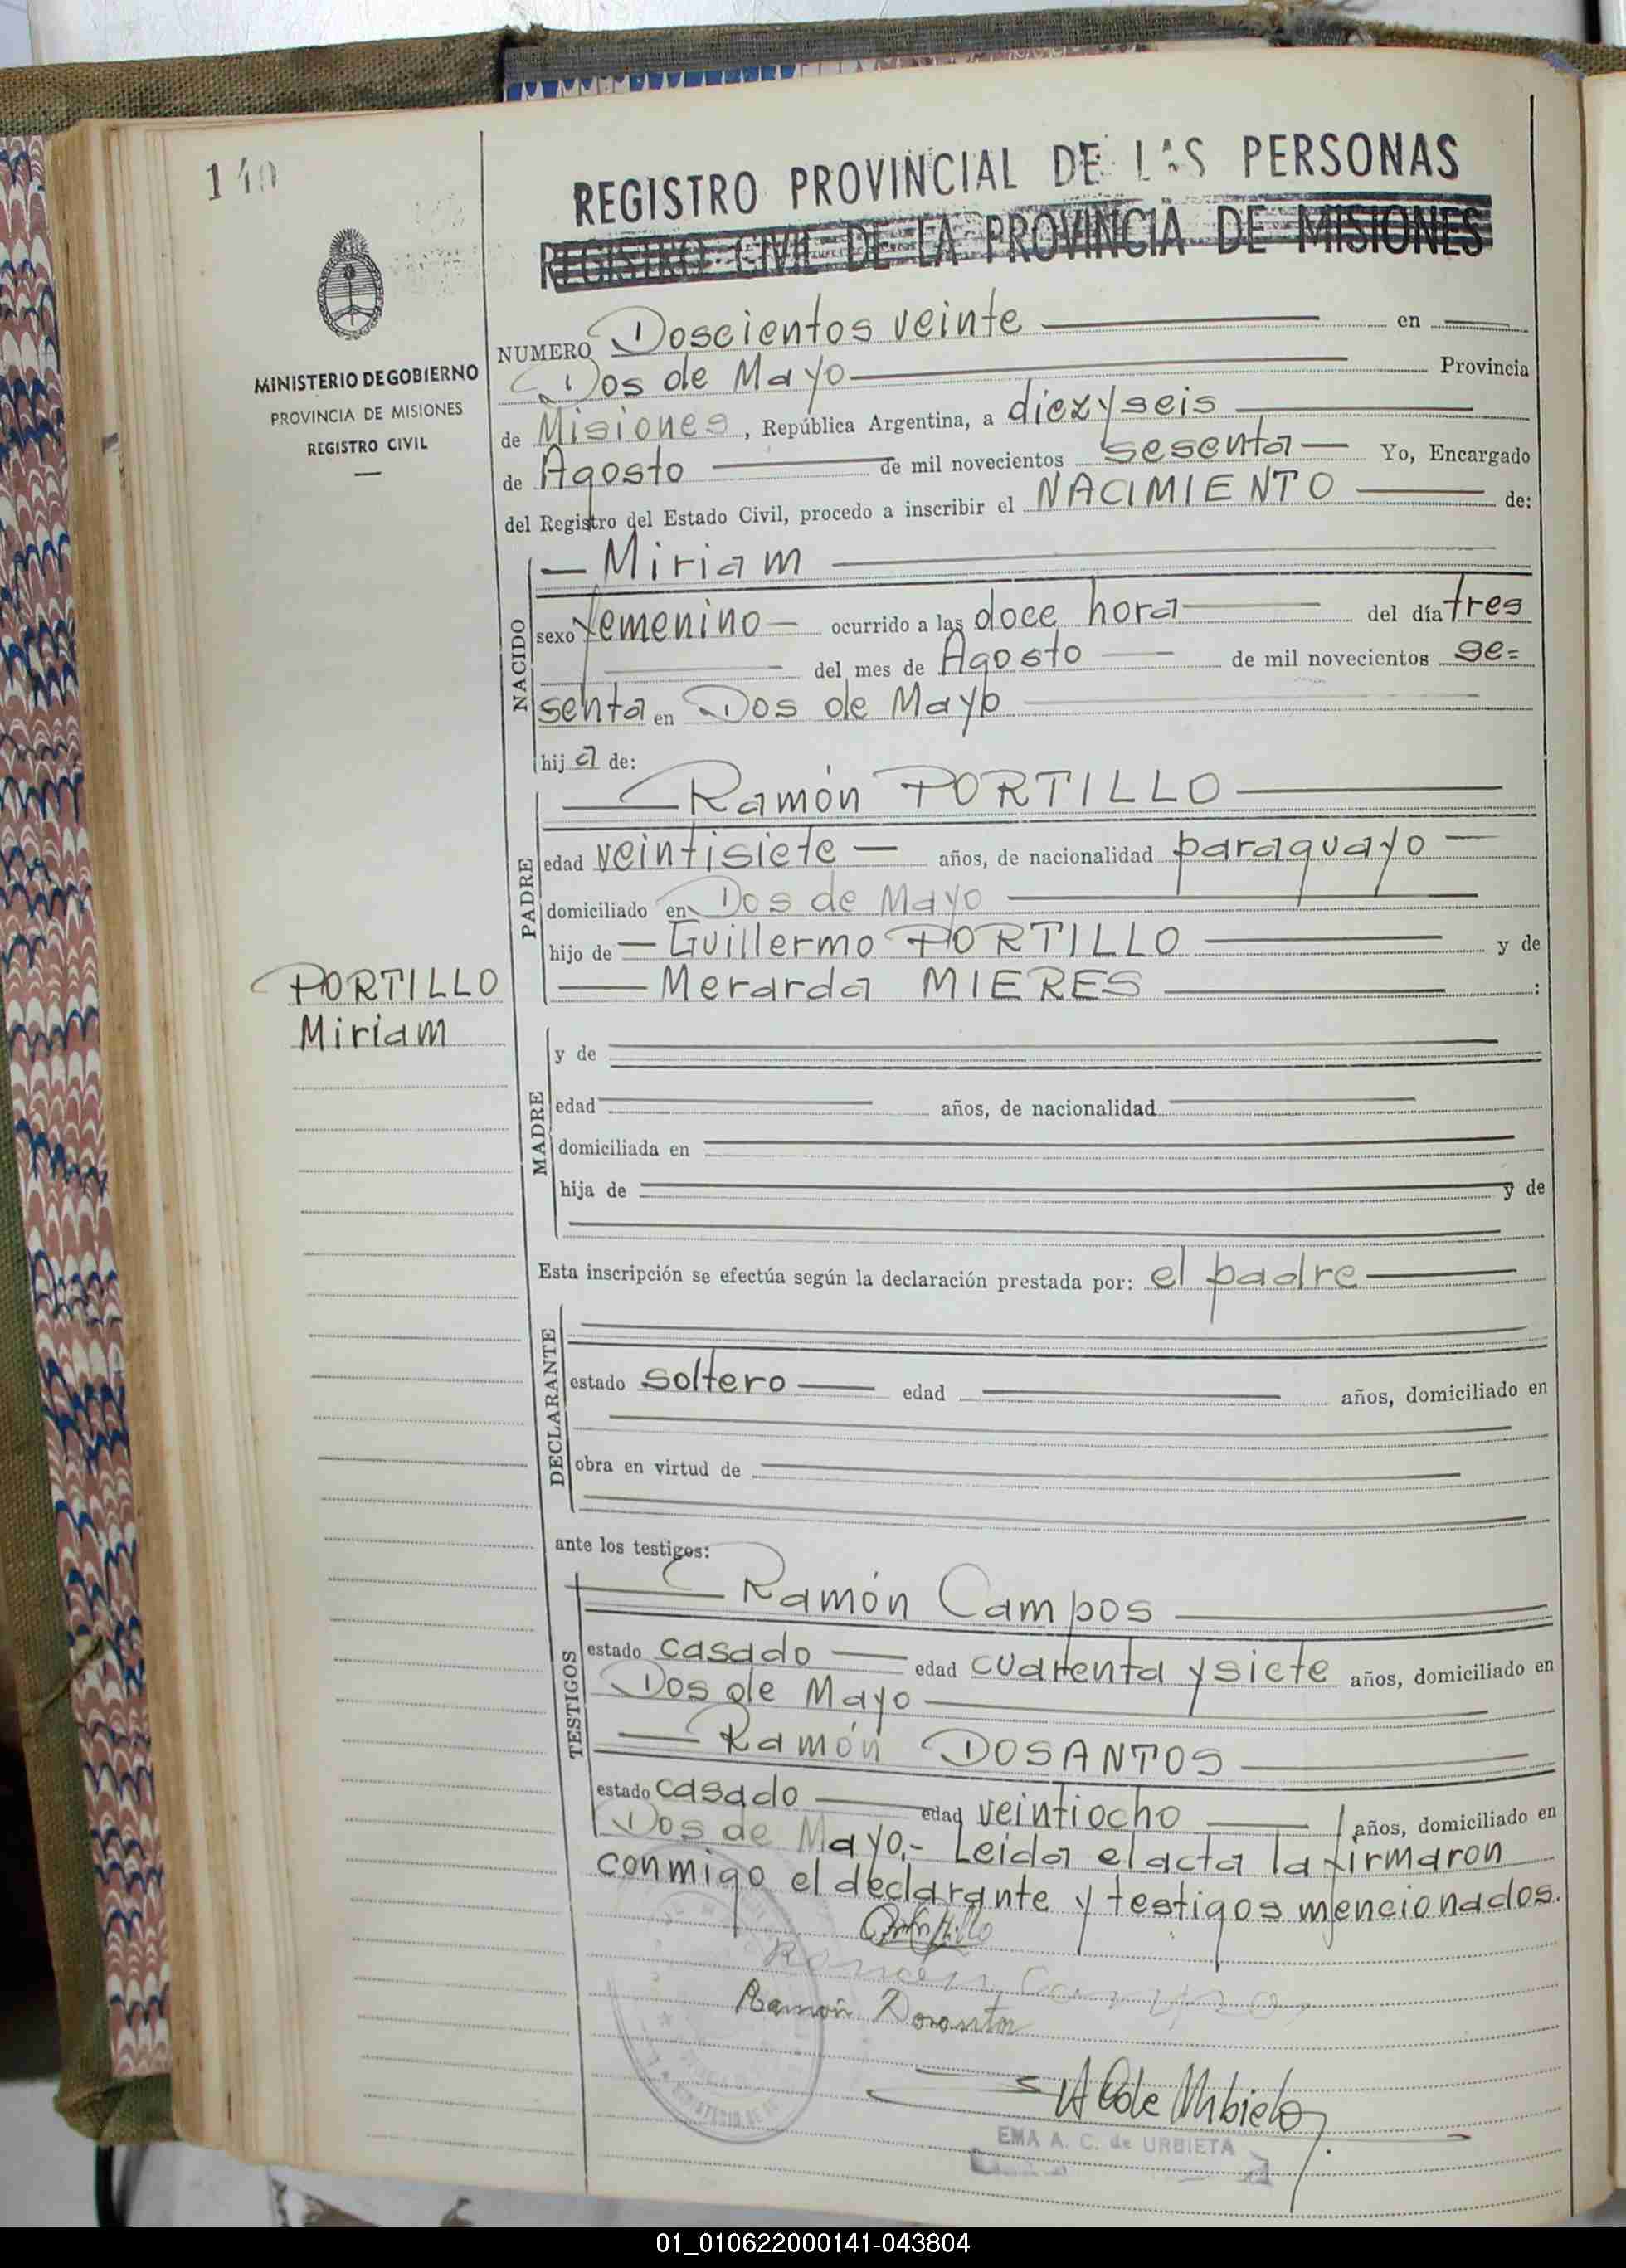 140
REGISTRO PROVINCIAL DE LAS PERSONAS
REGISTRO CIVIL DE LA PROVINCIA DE MISIONES
MINISTERIO DE GOBIERNO
PROVINCIA DE MISIONES
REGISTRO CIVIL
NUMERO Doscientos veinte en
Dos de Mayo Provincia
de Misiones, República Argentina, a diezyseis
de Agosto de mil novecientos sesenta Yo, Encargado
del Registro del Estado Civil, procedo a inscribir el NACIMIENTO de:
NACIDO
Miriam
sexo femenino ocurrido a las doce hora del día tres
del mes de Agosto de mil novecientos se=
senta en Dos de Mayo
hija de:
PADRE
Ramón PORTILLO
edad veintisiete años, de nacionalidad paraguayo
domiciliado en Dos de Mayo
hijo de Guillermo PORTILLO y de
Merarda MIERES :
PORTILLO
Miriam
MADRE
y de
edad años, de nacionalidad
domiciliada en
hija de y de
Esta inscripción se efectúa según la declaración prestada por: el padre
DECLARANTE
estado soltero edad años, domiciliado en
obra en virtud de
ante los testigos:
TESTIGOS
Ramón Campos
estado casado edad cuarenta y siete años, domiciliado en
Dos de Mayo
Ramón DOSANTOS
estado casado edad veintiocho años, domiciliado en
Dos de Mayo.- Leida el acta la firmaron
conmigo el declarante y testigos mencionados.
Ramón Campos
Ramón Dosantos
EMA A. C. de URBIETA
01_010622000141-043804